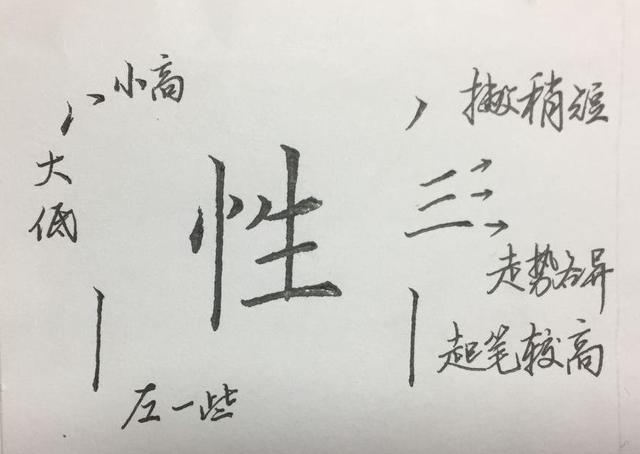 小高
撇稍短
大
低
性
走势各异
起笔较高
左一些